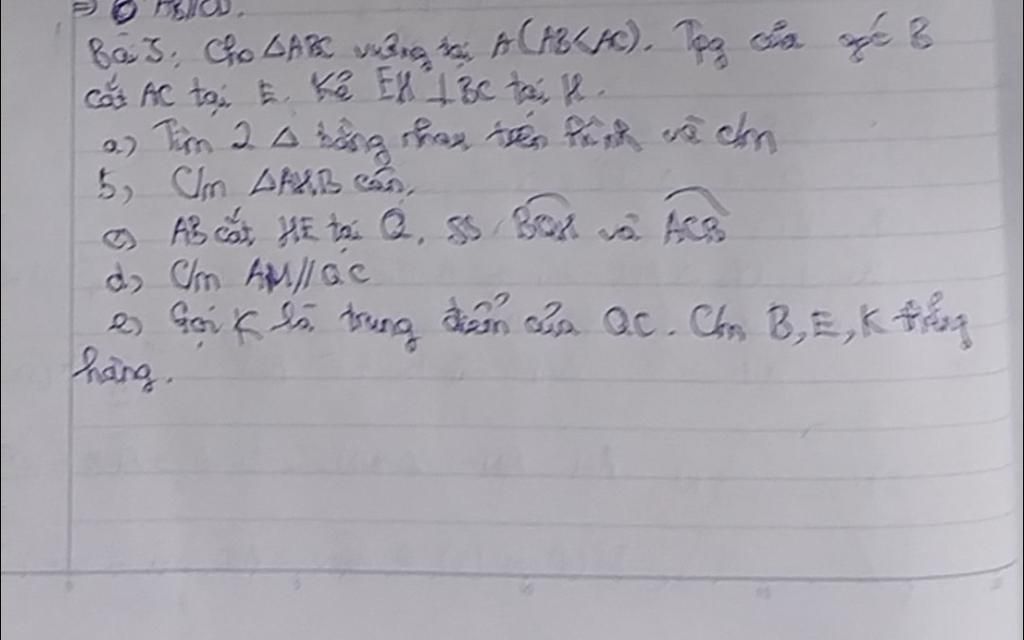 ⇒ AB//CD.
Bài 5: Cho △ABC vuông tại A(AB<AC). Tpg của góc B
cắt AC tại E. Kẻ EH ⊥ BC tại H.
a) Tìm 2 △ bằng nhau trên hình và c/m
b, C/m △AHB cân.
c) AB cắt HE tại Q. SS BQH và ACB
d) C/m AH//QC
e) Gọi K là trung điểm của QC. C/m B, E, K thẳng
hàng.